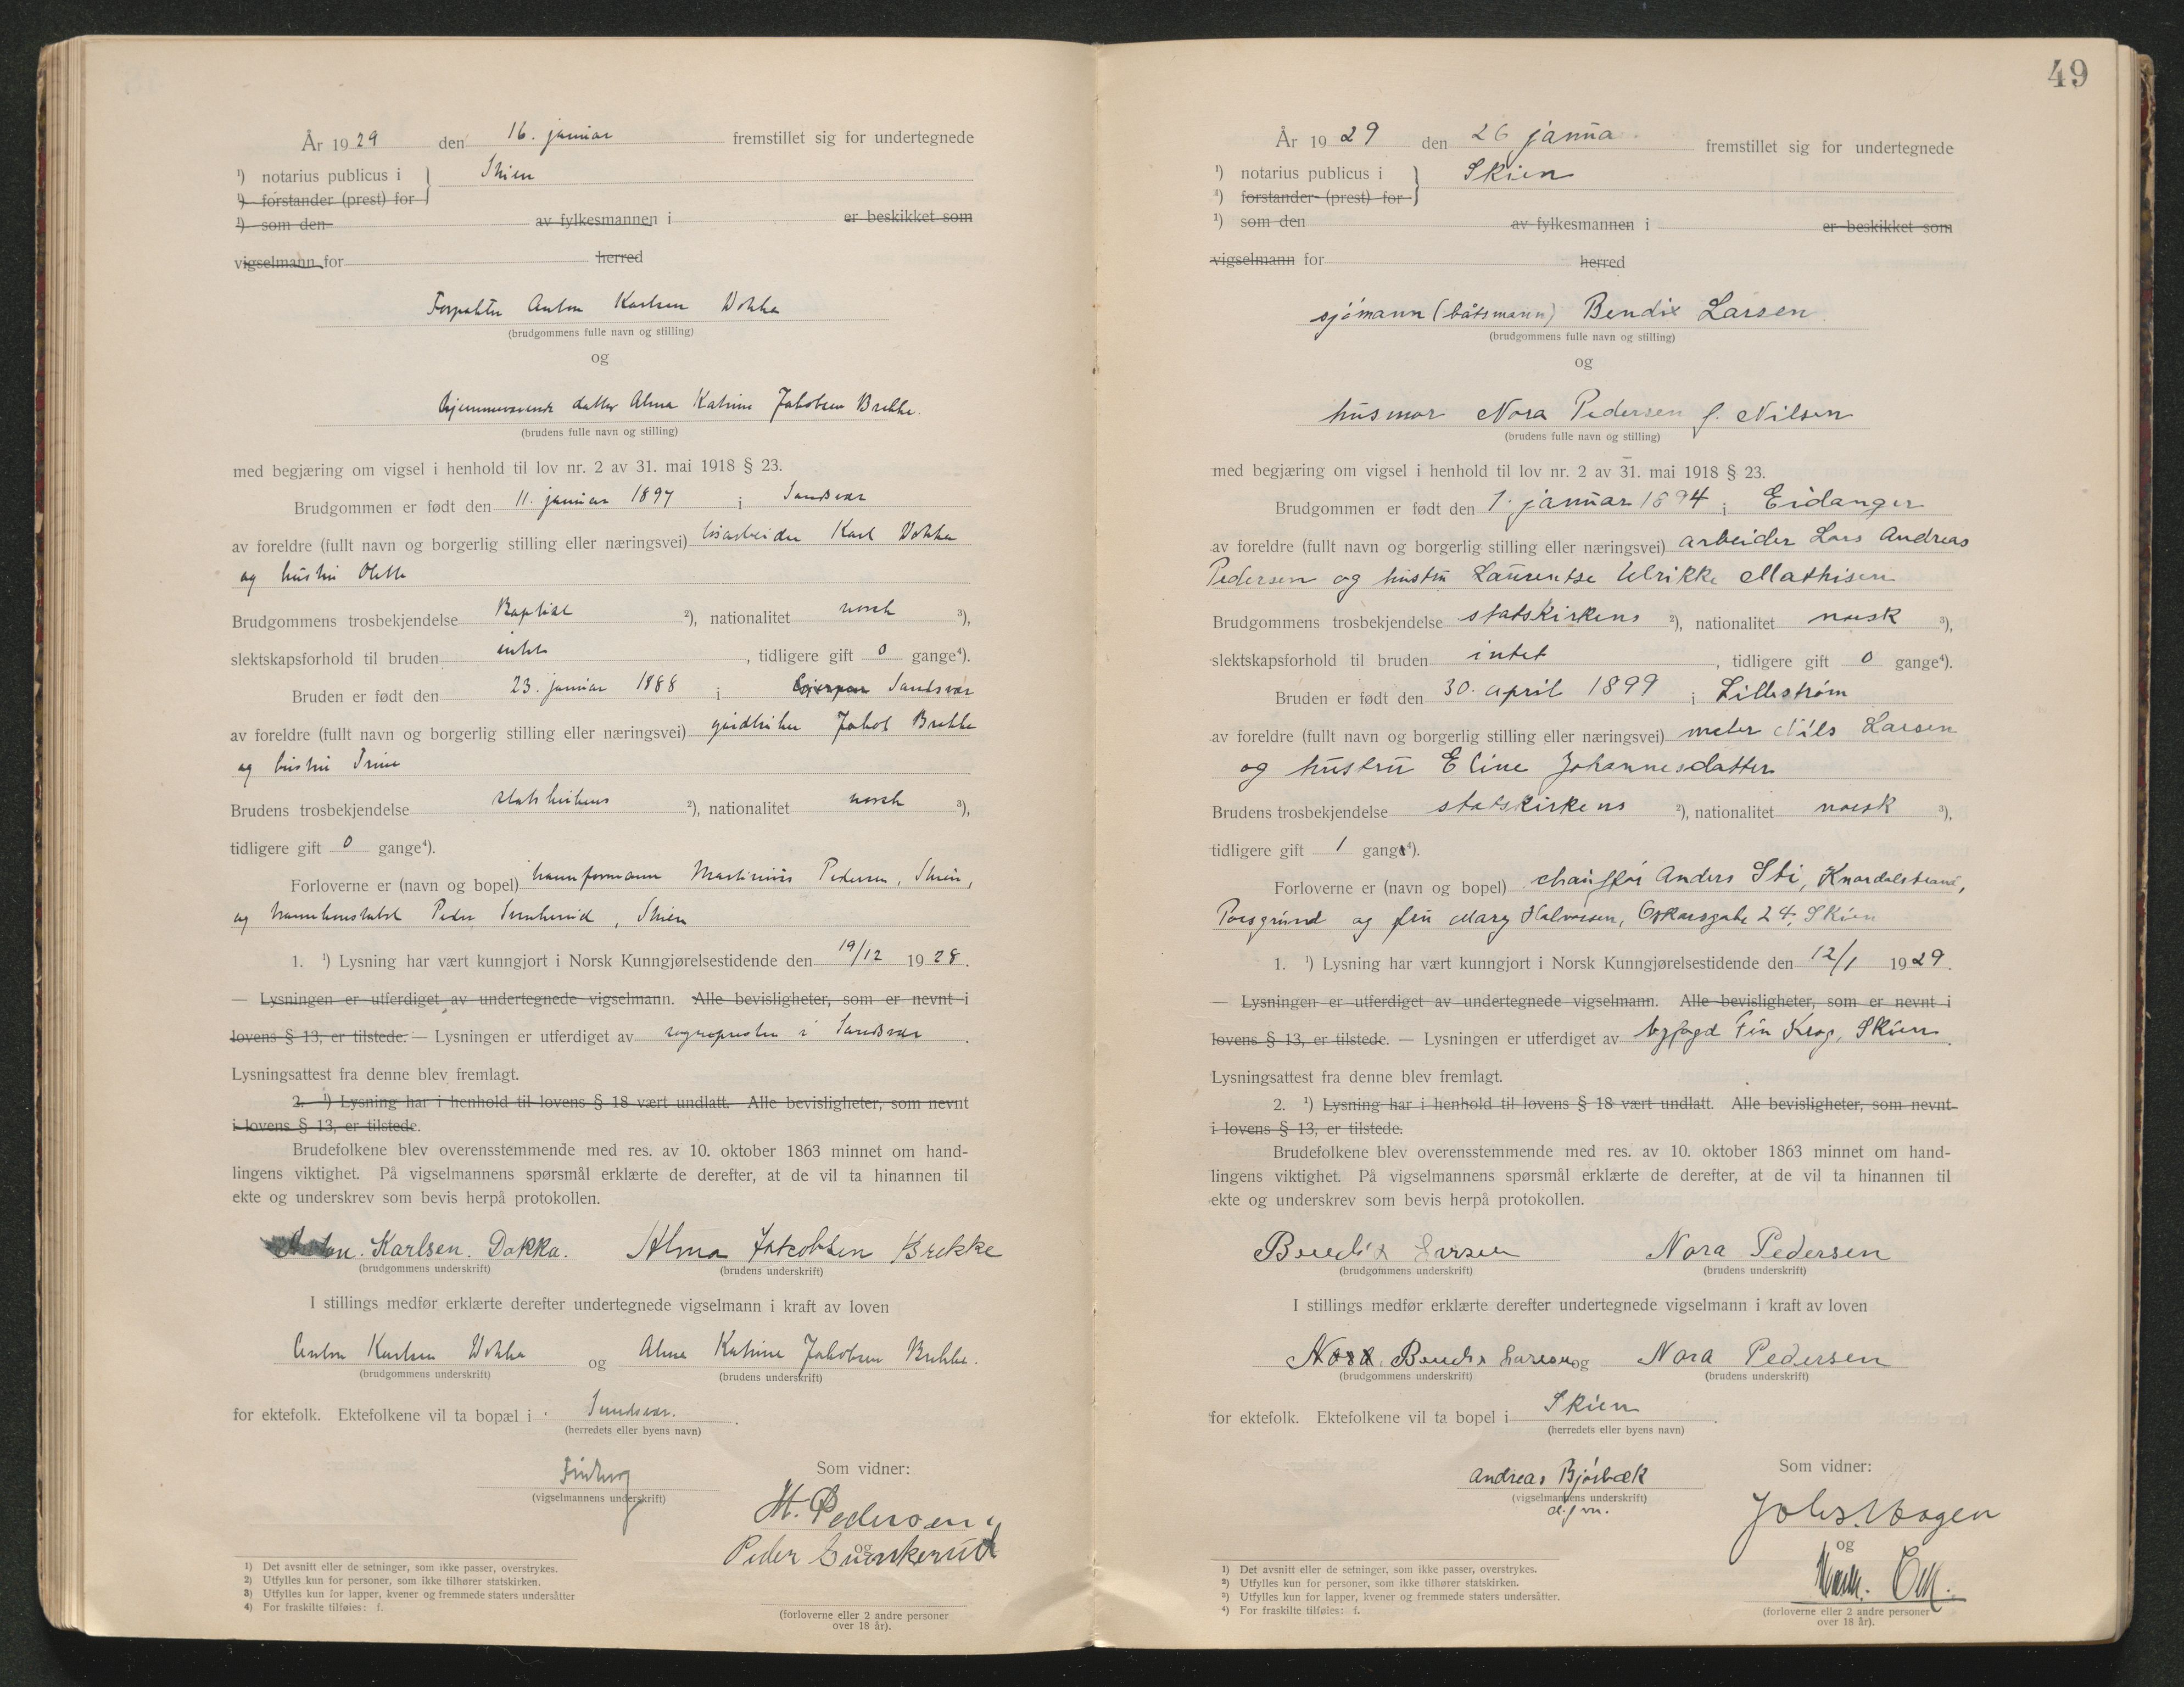 År 1929 den 16. januar fremstillet sig for undertegnede
¹) notarius publicus i } Skien
¹) forstander (prest) for
¹) som den av fylkesmannen i er beskikket som
vigselmann for herred
Forpakter Anton Karlsen Dokka
(brudgommens fulle navn og stilling)
og
hjemmeværende datter Alma Katrine Jakobsen Brekke.
(brudens fulle navn og stilling)
med begjæring om vigsel i henhold til lov nr. 2 av 31. mai 1918 § 23.
Brudgommen er født den 11. januar 1897 i Sandsvær
av foreldre (fullt navn og borgerlig stilling eller næringsvei) Karl Dokka
og hustru Olette
Brudgommens trosbekjendelse Baptist ²), nationalitet norsk ³),
slektskapsforhold til bruden intet, tidligere gift 0 gange⁴).
Bruden er født den 23. januar 1888 i Sandsvær
av foreldre (fullt navn og borgerlig stilling eller næringsvei) gårdbruker Jakob Brekke
og hustru Trine
Brudens trosbekjendelse statskirkens ²), nationalitet norsk ³),
tidligere gift 0 gange⁴).
Forloverne er (navn og bopel) havneformann Martinius Pedersen, Skien,
og Peder Svenkerud, Skien
1. ¹) Lysning har vært kunngjort i Norsk Kunngjørelsestidende den 19/12 1928.
— Lysningen er utferdiget av undertegnede vigselmann. Alle bevisligheter, som er nevnt i
lovens § 13, er tilstede. — Lysningen er utferdiget av sognepresten i Sandsvær.
Lysningsattest fra denne blev fremlagt.
2. ¹) Lysning har i henhold til lovens § 18 vært undlatt. Alle bevisligheter, som nevnt
i lovens § 13, er tilstede.
Brudefolkene blev overensstemmende med res. av 10. oktober 1863 minnet om hand-
lingens viktighet. På vigselmannens spørsmål erklærte de derefter, at de vil ta hinannen til
ekte og underskrev som bevis herpå protokollen.
Anton. Karlsen. Dokka. Alma Jakobsen Brekke
(brudgommens underskrift) (brudens underskrift)
I stillings medfør erklærte derefter undertegnede vigselmann i kraft av loven
Anton Karlsen Dokka og Alma Katrine Jakobsen Brekke.
(brudgommens underskrift) (brudens underskrift)
for ektefolk. Ektefolkene vil ta bopæl i Sandsvær.
(herredets eller byens navn)
Som vidner:
(vigselmannens underskrift)
M. Pedersen
og
Peder Svenkerud
(forloverne eller 2 andre personer
over 18 år).
1) Det avsnitt eller de setninger, som ikke passer, overstrykes.
2) Utfylles kun for personer, som ikke tilhører statskirken.
3) Utfylles kun for lapper, kvener og fremmede staters undersåtter
4) For fraskilte tilføies: f.
49
År 1929 den 26 janua fremstillet sig for undertegnede
¹) notarius publicus i } Skien
¹) forstander (prest) for
¹) som den av fylkesmannen i er beskikket som
vigselmann for herred
sjømann (båtsmann) Bendix Larsen
(brudgommens fulle navn og stilling)
og
husmor Nora Pedersen f. Nilsen
(brudens fulle navn og stilling)
med begjæring om vigsel i henhold til lov nr. 2 av 31. mai 1918 § 23.
Brudgommen er født den 1. januar 1894 i Eidanger
av foreldre (fullt navn og borgerlig stilling eller næringsvei) arbeider Lars Andreas
Pedersen og hustru Laurentse Ulrikke Mathisen
Brudgommens trosbekjendelse statskirkens ²), nationalitet norsk ³),
slektskapsforhold til bruden intet, tidligere gift 0 gange⁴).
Bruden er født den 30. april 1899 i Lillestrøm
av foreldre (fullt navn og borgerlig stilling eller næringsvei) Nils Larsen
og hustru Eline Johannesdatter
Brudens trosbekjendelse statskirkens ²), nationalitet norsk ³),
tidligere gift 1 gang⁴).
Forloverne er (navn og bopel) chauffør Anders Sti, Knardalstrand,
Porsgrund og fru Mary Halvorsen, Oskarsgate 24, Skien
1. ¹) Lysning har vært kunngjort i Norsk Kunngjørelsestidende den 12/1 1929.
— Lysningen er utferdiget av undertegnede vigselmann. Alle bevisligheter, som er nevnt i
lovens § 13, er tilstede. — Lysningen er utferdiget av byfogd Fin Krog, Skien.
Lysningsattest fra denne blev fremlagt.
2. ¹) Lysning har i henhold til lovens § 18 vært undlatt. Alle bevisligheter, som nevnt
i lovens § 13, er tilstede.
Brudefolkene blev overensstemmende med res. av 10. oktober 1863 minnet om hand-
lingens viktighet. På vigselmannens spørsmål erklærte de derefter, at de vil ta hinannen til
ekte og underskrev som bevis herpå protokollen.
Bendix Larsen Nora Pedersen
(brudgommens underskrift) (brudens underskrift)
I stillings medfør erklærte derefter undertegnede vigselmann i kraft av loven
Nora Bendix Larsen og Nora Pedersen
(brudgommens underskrift) (brudens underskrift)
for ektefolk. Ektefolkene vil ta bopel i Skien.
(herredets eller byens navn)
Andreas Bjørbæk Som vidner:
(vigselmannens underskrift)
Johs. Hagen
og
(forloverne eller 2 andre personer
over 18 år).
1) Det avsnitt eller de setninger, som ikke passer, overstrykes.
2) Utfylles kun for personer, som ikke tilhører statskirken.
3) Utfylles kun for lapper, kvener og fremmede staters undersåtter.
4) For fraskilte tilføies: f.